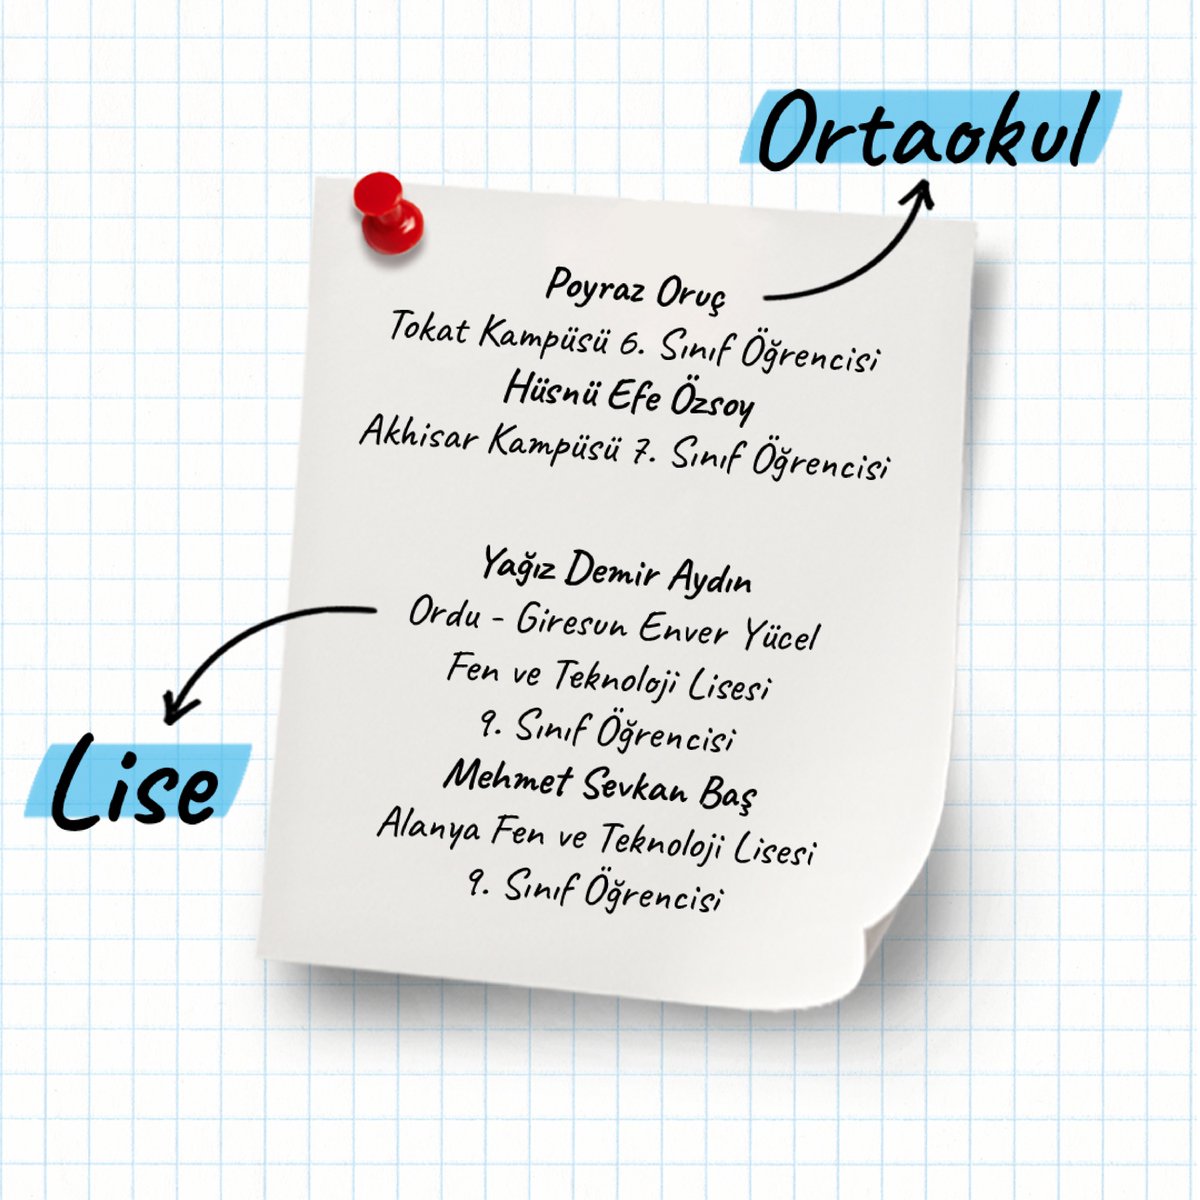 Ortaokul
Poyraz Oruç
Tokat Kampüsü 6. Sınıf Öğrencisi
Hüsnü Efe Özsoy
Akhisar Kampüsü 7. Sınıf Öğrencisi
Yağız Demir Aydın
Ordu - Giresun Enver Yücel
Fen ve Teknoloji Lisesi
9. Sınıf Öğrencisi
Mehmet Sevkan Baş
Alanya Fen ve Teknoloji Lisesi
9. Sınıf Öğrencisi
Lise